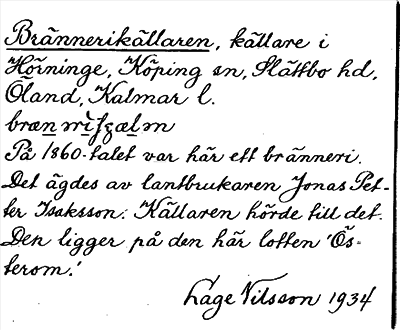 Brännerikällaren, källare i
Hörninge, Köping sn, Slättbo hd,
Öland, Kalmar l.
På 1860-talet var här ett bränneri.
Det ägdes av lantbrukaren Jonas Pet-
ter Isaksson. Källaren hörde till det.
Den ligger på den här lotten 'Ös-
terom.'
Låge Nilsson 1934